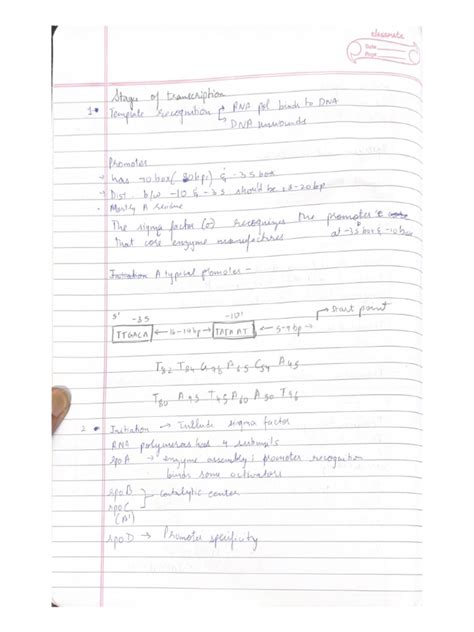 classmate
Date
Page
Stages of transcription
1. Template recognition → RNA pol binds to DNA
→ DNA unwounds
Promoter
→ has -10 box ( 80bp) & -35 box
→ Dist. b/w -10 & -35 should be 15-20 bp
- Mostly A
The sigma factor (σ) recognizes the promoter
that core enzyme at -35 box & -10 box
Initiation A typical promoter -
5' -35 -10 → Start point
TTGACA ← 16-19bp → TATAAT ← 5-9bp →
T82 T84 G78 A65 C54 A45
T80 A95 T45 A60 A50 T96
2 • Initiation → Include sigma factor
RNA polymerase had 4 subunits
rpoA → enzyme assembly; promoter recognition
binds some activators
rpoB
rpoC } → catalytic center
(β')
rpoD → Promoter specificity